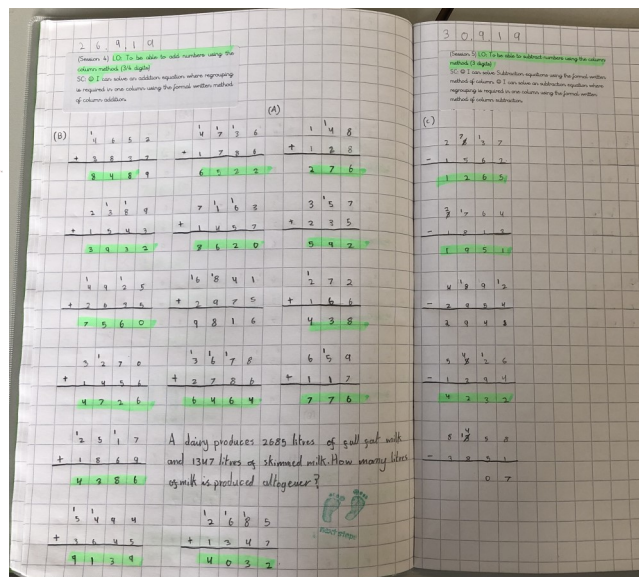 26.9.19
(Session 4) LO: To be able to add numbers using the
column method (3/4 digits)
SC: ☺ I can solve an addition equation where regrouping
is required in one column using the formal written method
of column addition.
(A)
(B)
4652 4736 148
+ 3837 + 1786 + 128
8489 6522 276
2389 7163 357
+ 1543 + 1457 + 235
3932 8620 592
4925 6841 272
+ 2635 + 2975 + 166
7560 9816 438
3270 3678 659
+ 1456 + 2786 + 117
4726 6464 776
2517 A dairy produces 2685 litres of full fat milk
+ 1869 and 1347 litres of skimmed milk. How many litres
4286 of milk is produced altogether?
next steps
5494 2685
+ 3645 + 1347
9139 4032
30.9.19
(Session 5) LO: To be able to subtract numbers using the column
method (3 digits)
SC: ☺ I can solve Subtraction equations using the formal written
method. ☺ I can solve an subtraction equation where
regrouping is required in one column using the formal written
method of column subtraction.
(C)
1265
3764
- 1813
1951
- 2954
2948
- 1294
4232
- 3851
07